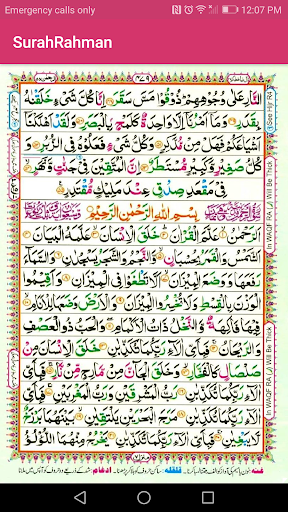 Emergency calls only 12:07 PM
SurahRahman
٤٧٩
النَّارِ عَلٰى وُجُوْهِهِمْ ذُوْقُوْا مَسَّ سَقَرَ اِنَّا كُلَّ شَىْءٍ خَلَقْنٰهُ
بِقَدَرٍ وَمَآ اَمْرُنَآ اِلَّا وَاحِدَةٌ كَلَمْحٍۭ بِالْبَصَرِ وَلَقَدْ اَهْلَكْنَآ
اَشْيَاعَكُمْ فَهَلْ مِنْ مُّدَّكِرٍ وَكُلُّ شَىْءٍ فَعَلُوْهُ فِى الزُّبُرِ وَ
كُلُّ صَغِيْرٍ وَّكَبِيْرٍ مُّسْتَطَرٌ اِنَّ الْمُتَّقِيْنَ فِىْ جَنّٰتٍ وَّنَهَرٍ
فِىْ مَقْعَدِ صِدْقٍ عِنْدَ مَلِيْكٍ مُّقْتَدِرٍ
بِسْمِ اللهِ الرَّحْمٰنِ الرَّحِيْمِ
اَلرَّحْمٰنُ عَلَّمَ الْقُرْاٰنَ خَلَقَ الْاِنْسَانَ عَلَّمَهُ الْبَيَانَ
اَلشَّمْسُ وَالْقَمَرُ بِحُسْبَانٍ وَّالنَّجْمُ وَالشَّجَرُ يَسْجُدٰنِ وَالسَّمَآءَ
رَفَعَهَا وَوَضَعَ الْمِيْزَانَ اَلَّا تَطْغَوْا فِى الْمِيْزَانِ وَاَقِيْمُوا
الْوَزْنَ بِالْقِسْطِ وَلَا تُخْسِرُوا الْمِيْزَانَ وَالْاَرْضَ وَضَعَهَا لِلْاَنَامِ
فِيْهَا فَاكِهَةٌ وَّالنَّخْلُ ذَاتُ الْاَكْمَامِ وَالْحَبُّ ذُو الْعَصْفِ
وَالرَّيْحَانُ فَبِاَىِّ اٰلَآءِ رَبِّكُمَا تُكَذِّبٰنِ خَلَقَ الْاِنْسَانَ مِنْ
صَلْصَالٍ كَالْفَخَّارِ وَخَلَقَ الْجَآنَّ مِنْ مَّارِجٍ مِّنْ نَّارٍ
فَبِاَىِّ اٰلَآءِ رَبِّكُمَا تُكَذِّبٰنِ رَبُّ الْمَشْرِقَيْنِ وَرَبُّ الْمَغْرِبَيْنِ
فَبِاَىِّ اٰلَآءِ رَبِّكُمَا تُكَذِّبٰنِ مَرَجَ الْبَحْرَيْنِ يَلْتَقِيٰنِ بَيْنَهُمَا بَرْزَخٌ
لَّا يَبْغِيٰنِ فَبِاَىِّ اٰلَآءِ رَبِّكُمَا تُكَذِّبٰنِ يَخْرُجُ مِنْهُمَا اللُّؤْلُؤُ
In WAQF RA (ر) Will Be Thick
In WAQF RA (ر) Will Be Thick